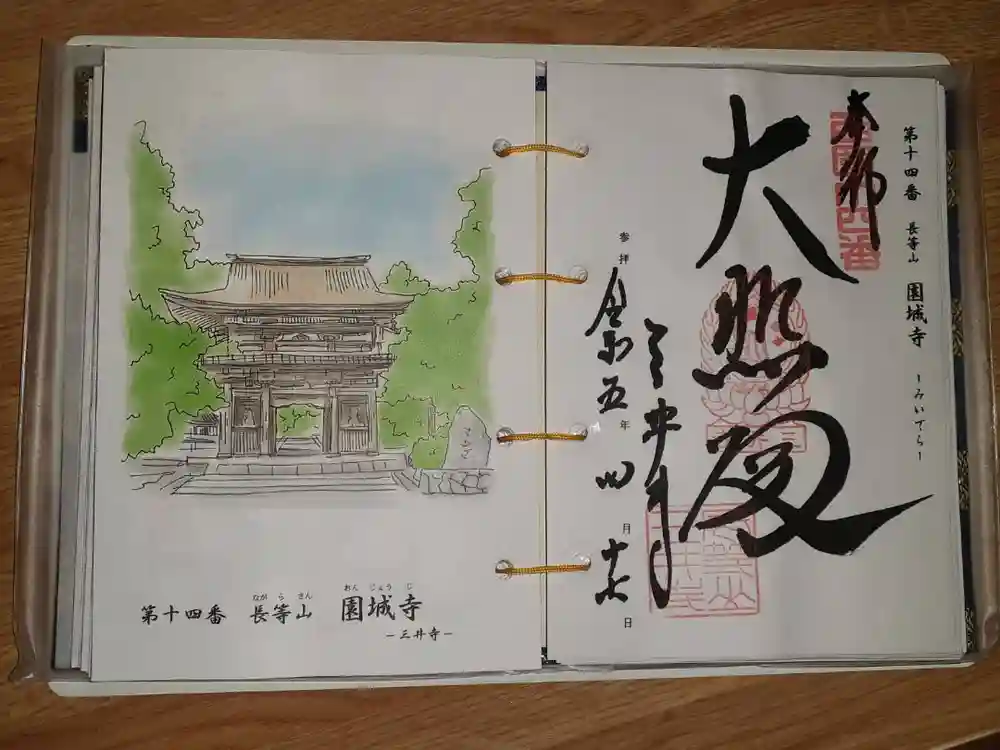 ながらさん　おんじょうじ
第十四番　長等山　園城寺
－三井寺－
第十四番　長等山　園城寺　－みいでら－
奉拝
西国十四番
大悲殿
三井寺
参拝　令和五年　四月　日